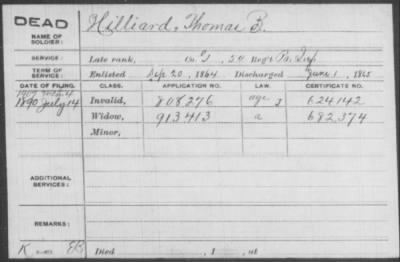 DEAD
NAME OF SOLDIER:
Hilliard, Thomas B.
SERVICE:
Late rank, Co. G, 54 Reg't Pa. Inf.
TERM OF SERVICE:
Enlisted Sep. 20, 1864. Discharged June 1, 1865
DATE OF FILING. CLASS. APPLICATION NO. LAW. CERTIFICATE NO.
1890 July 14 Invalid, 808276 age 624142
Widow, 913413 a 682374
Minor,
ADDITIONAL SERVICES:
REMARKS:
Died , 1 , at